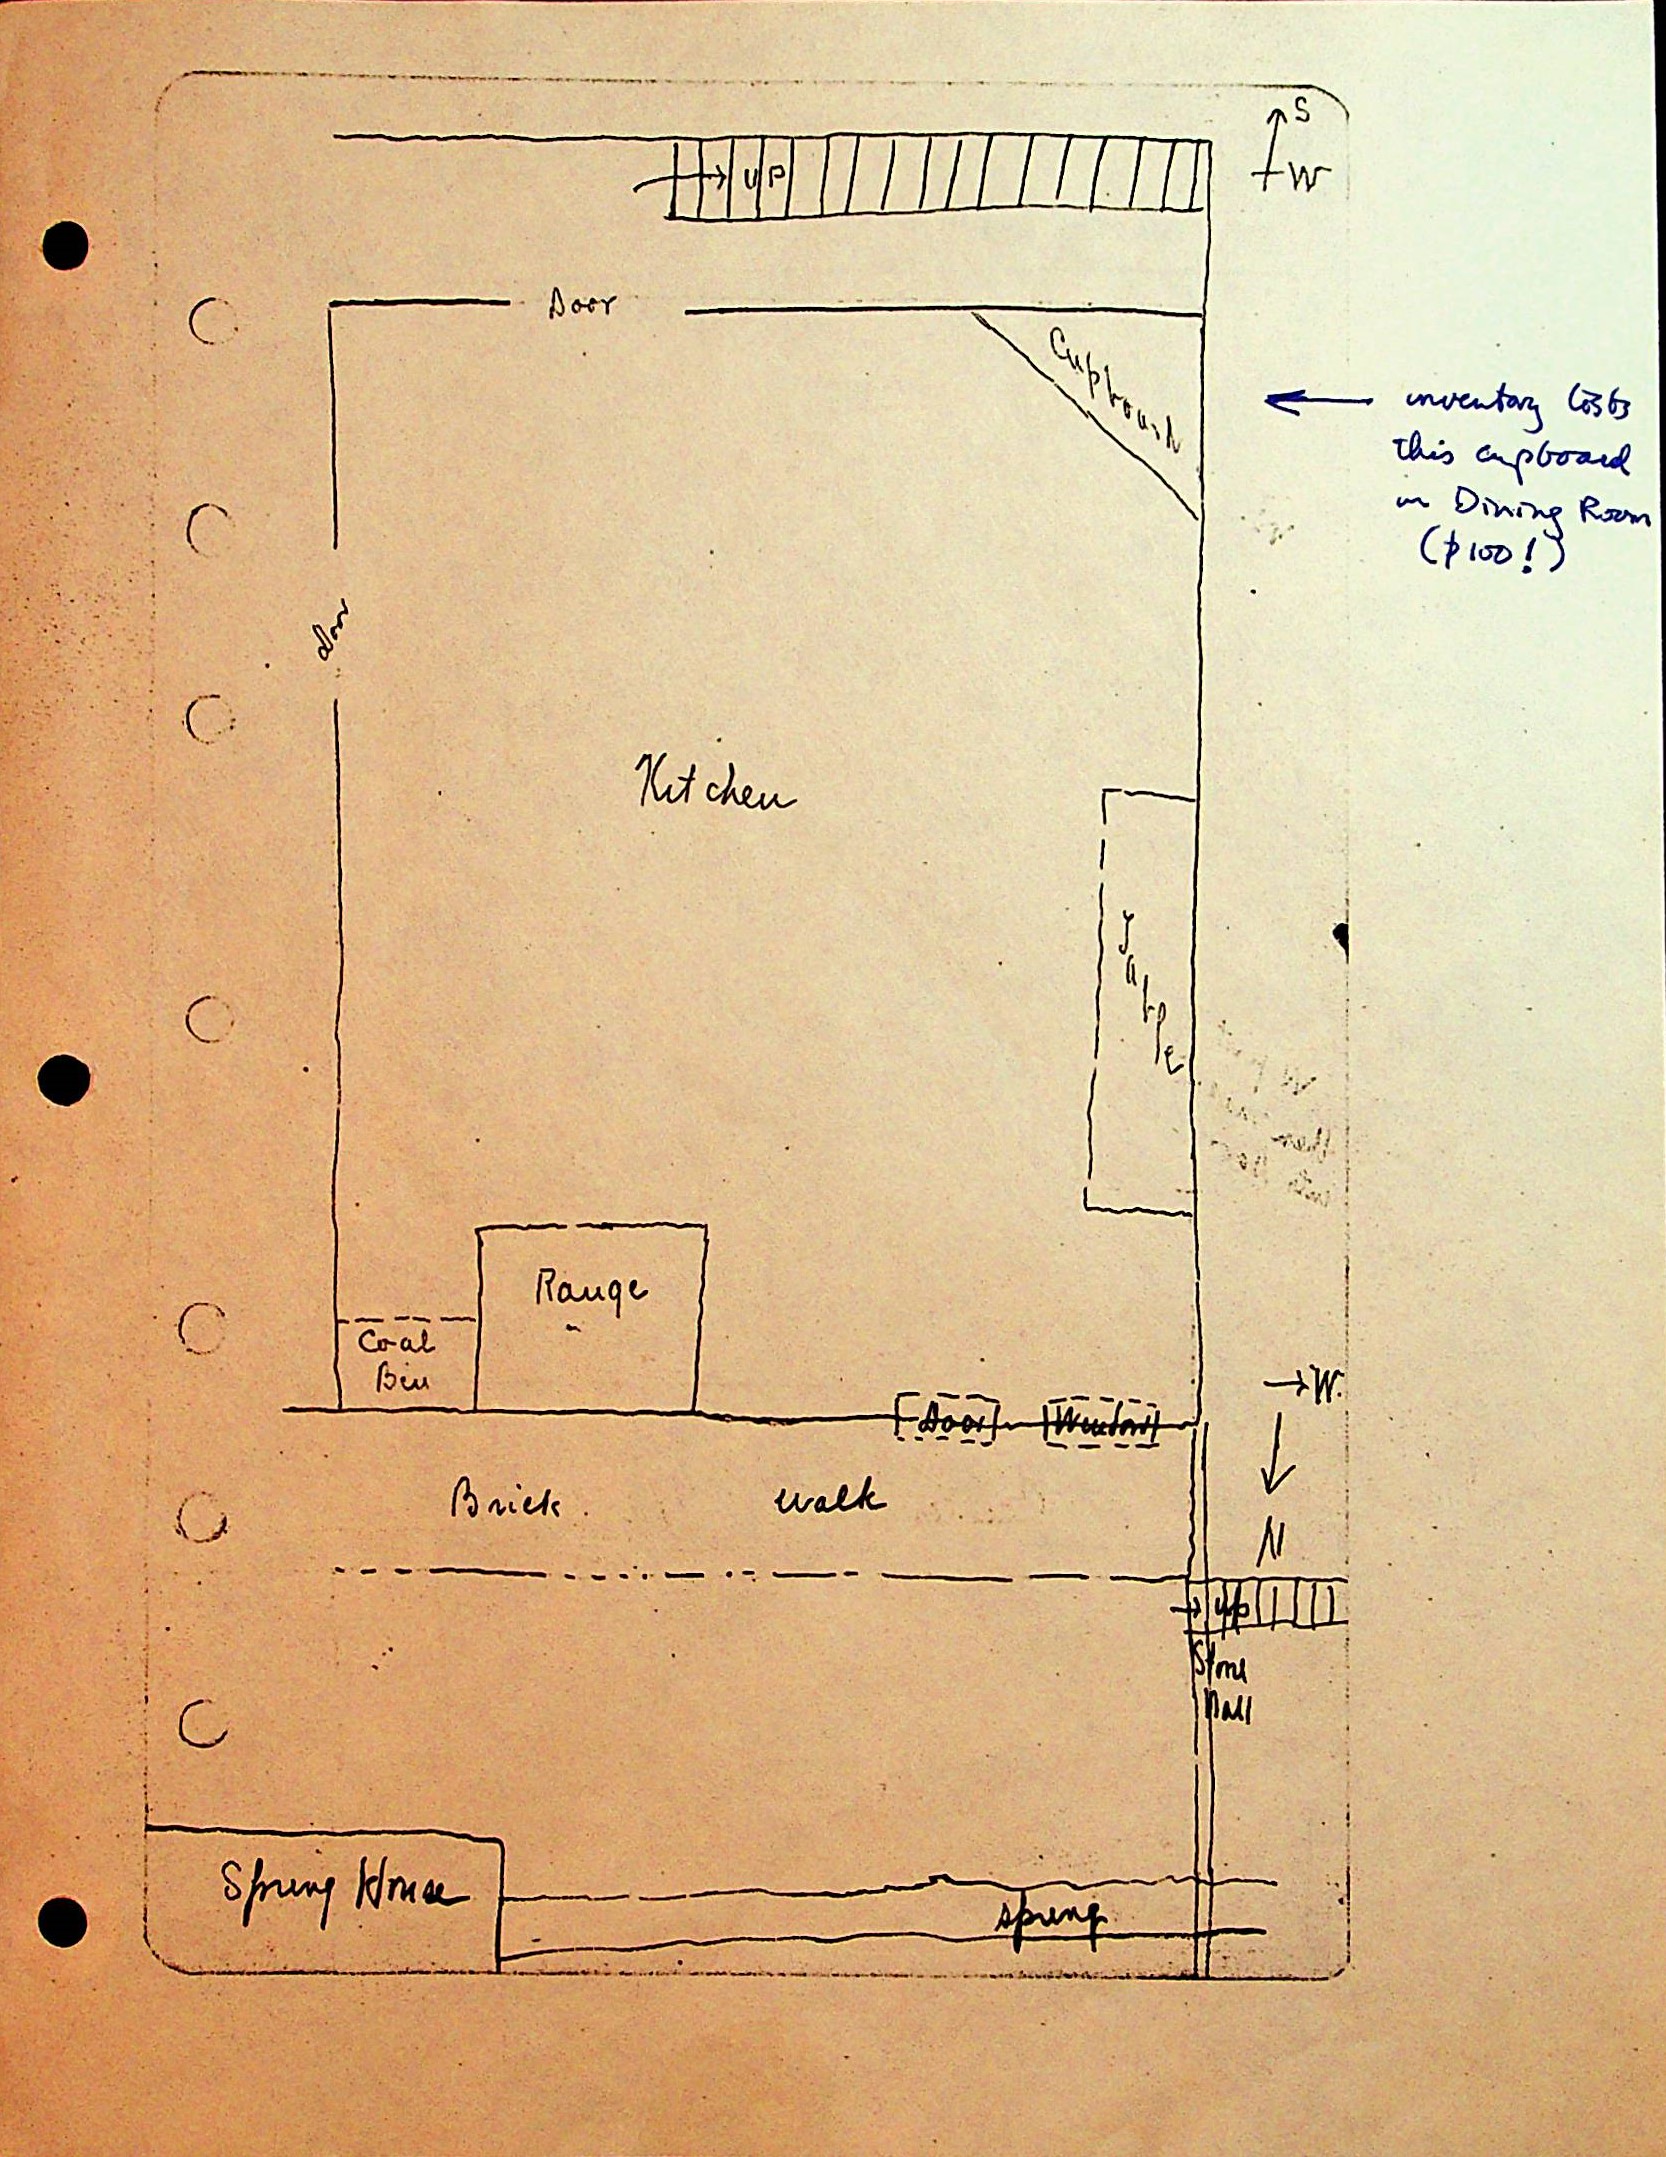 S
W
UP
Door
Cupboard
inventory lists
this cupboard
in Dining Room
($100!)
Door
Kitchen
Table
Range
Coal
Bin
W.
Door
Window
Brick walk
N
up
Stone
Wall
Spring House
spring